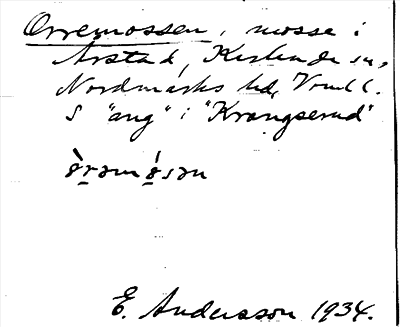 Orremossen, mosse i
Årstad, Karlanda sn,
Nordmarks hd, Vrml.
S "ang" i "Krangserud"
E. Andersson 1934.